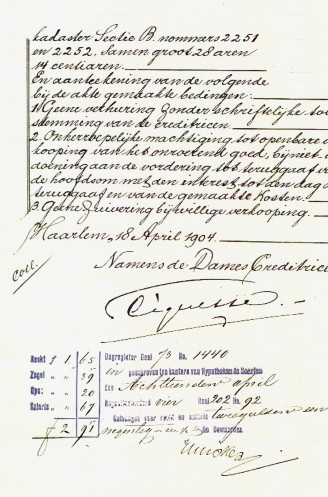 kadaster Sectie B. nommers 2251
en 2252, Samen groot 28 aren
14 centiaren.
En aanteekening van de volgende
bij de akte gemaakte bedingen:
1) Geene verhuring zonder schriftelijke toe
stemming van de creditricen.
2. Onherroepelijke machtiging tot openbare
kooping van het onroerend goed, bij niet
doening aan de vordering tot teruggaaf v
de hoofdsom met den interest tot den dag
teruggaaf en van de gemaakte Kosten.
3. Geene Zuivering bij willige verkooping.
Haarlem, 18 April 1904.
Coll.
Namens de Dames Creditrice
Recht f 1 65
Zegel " " 39
" " 20
Salaris " " 67
f 2 91
Dagregister Deel 73 No. 1440
In geschreven ten kantore van Hypotheken te Haarlem
den Achttienden april
vier Deel 202 No. 92
Ontvangen voor recht en salaris twee gulden een
negentig
De Bewaarder,